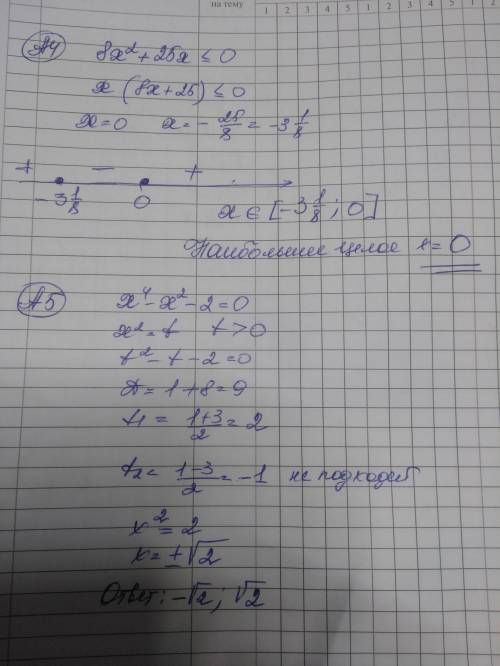 на тему
1 2 3 4 5 1 2
А4 8x² + 25x ≤ 0
x (8x+25) ≤ 0
x=0 x = - 25/8 = -3 1/8
+ − +
-3 1/8 0
x ∈ [-3 1/8 ; 0]
Наибольшее целое x = 0
А5 x⁴ - x² - 2 = 0
x² = t t > 0
t² - t - 2 = 0
D = 1 + 8 = 9
t₁ = (1+3)/2 = 2
t₂ = (1-3)/2 = -1 не подходит
x² = 2
x = ±√2
Ответ: -√2; √2